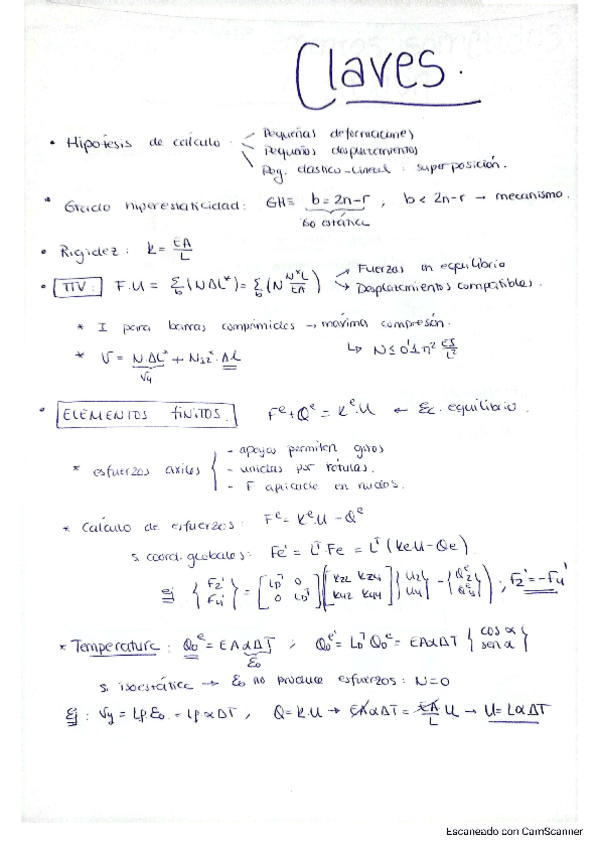 Claves.
• Hipótesis de cálculo: Pequeñas deformaciones
Pequeños desplazamientos
Reg. elástico-lineal: superposición.
• Grado hiperestaticidad: GH ≡ b = 2n-r , b < 2n-r → mecanismo.
isoestática
• Rigidez: k = EA/L
• TTV: F.U = Σb (N ΔL*) = Σb (N N*L/EA) Fuerzas en equilibrio
Desplazamientos compatibles.
* I para barras comprimidas → máxima compresión.
↳ N ≤ 0'1 π² EI/L²
* V = N.ΔL* + N12*.Δl
V4
• ELEMENTOS FINITOS. Fe + Qe = Ke.U ← Ec. equilibrio.
- apoyos permiten giros
* esfuerzos axiles - unidas por rótulas.
- F aplicada en nudos.
* Cálculo de esfuerzos: Fe = Ke.U - Qe
Si coord. globales: Fe' = LT.Fe = LT (KeU - Qe)
ej {F2' F4'} = [LDT 0 0 LDT] [K22 K24 K42 K44] {U2 U4} - {Q2e Q4e} ; F2' = -F4'
* Temperatura: Q0e = EAαΔT ; Q0e' = LDT Q0e = EAαΔT {cos α sen α}
ε0
Si isoestática → ε0 no produce esfuerzos: N=0
Ej: Vy = Lp.ε0 = LpαΔT , Q = K.U → EAαΔT = EA/L U → U = LαΔT
Escaneado con CamScanner